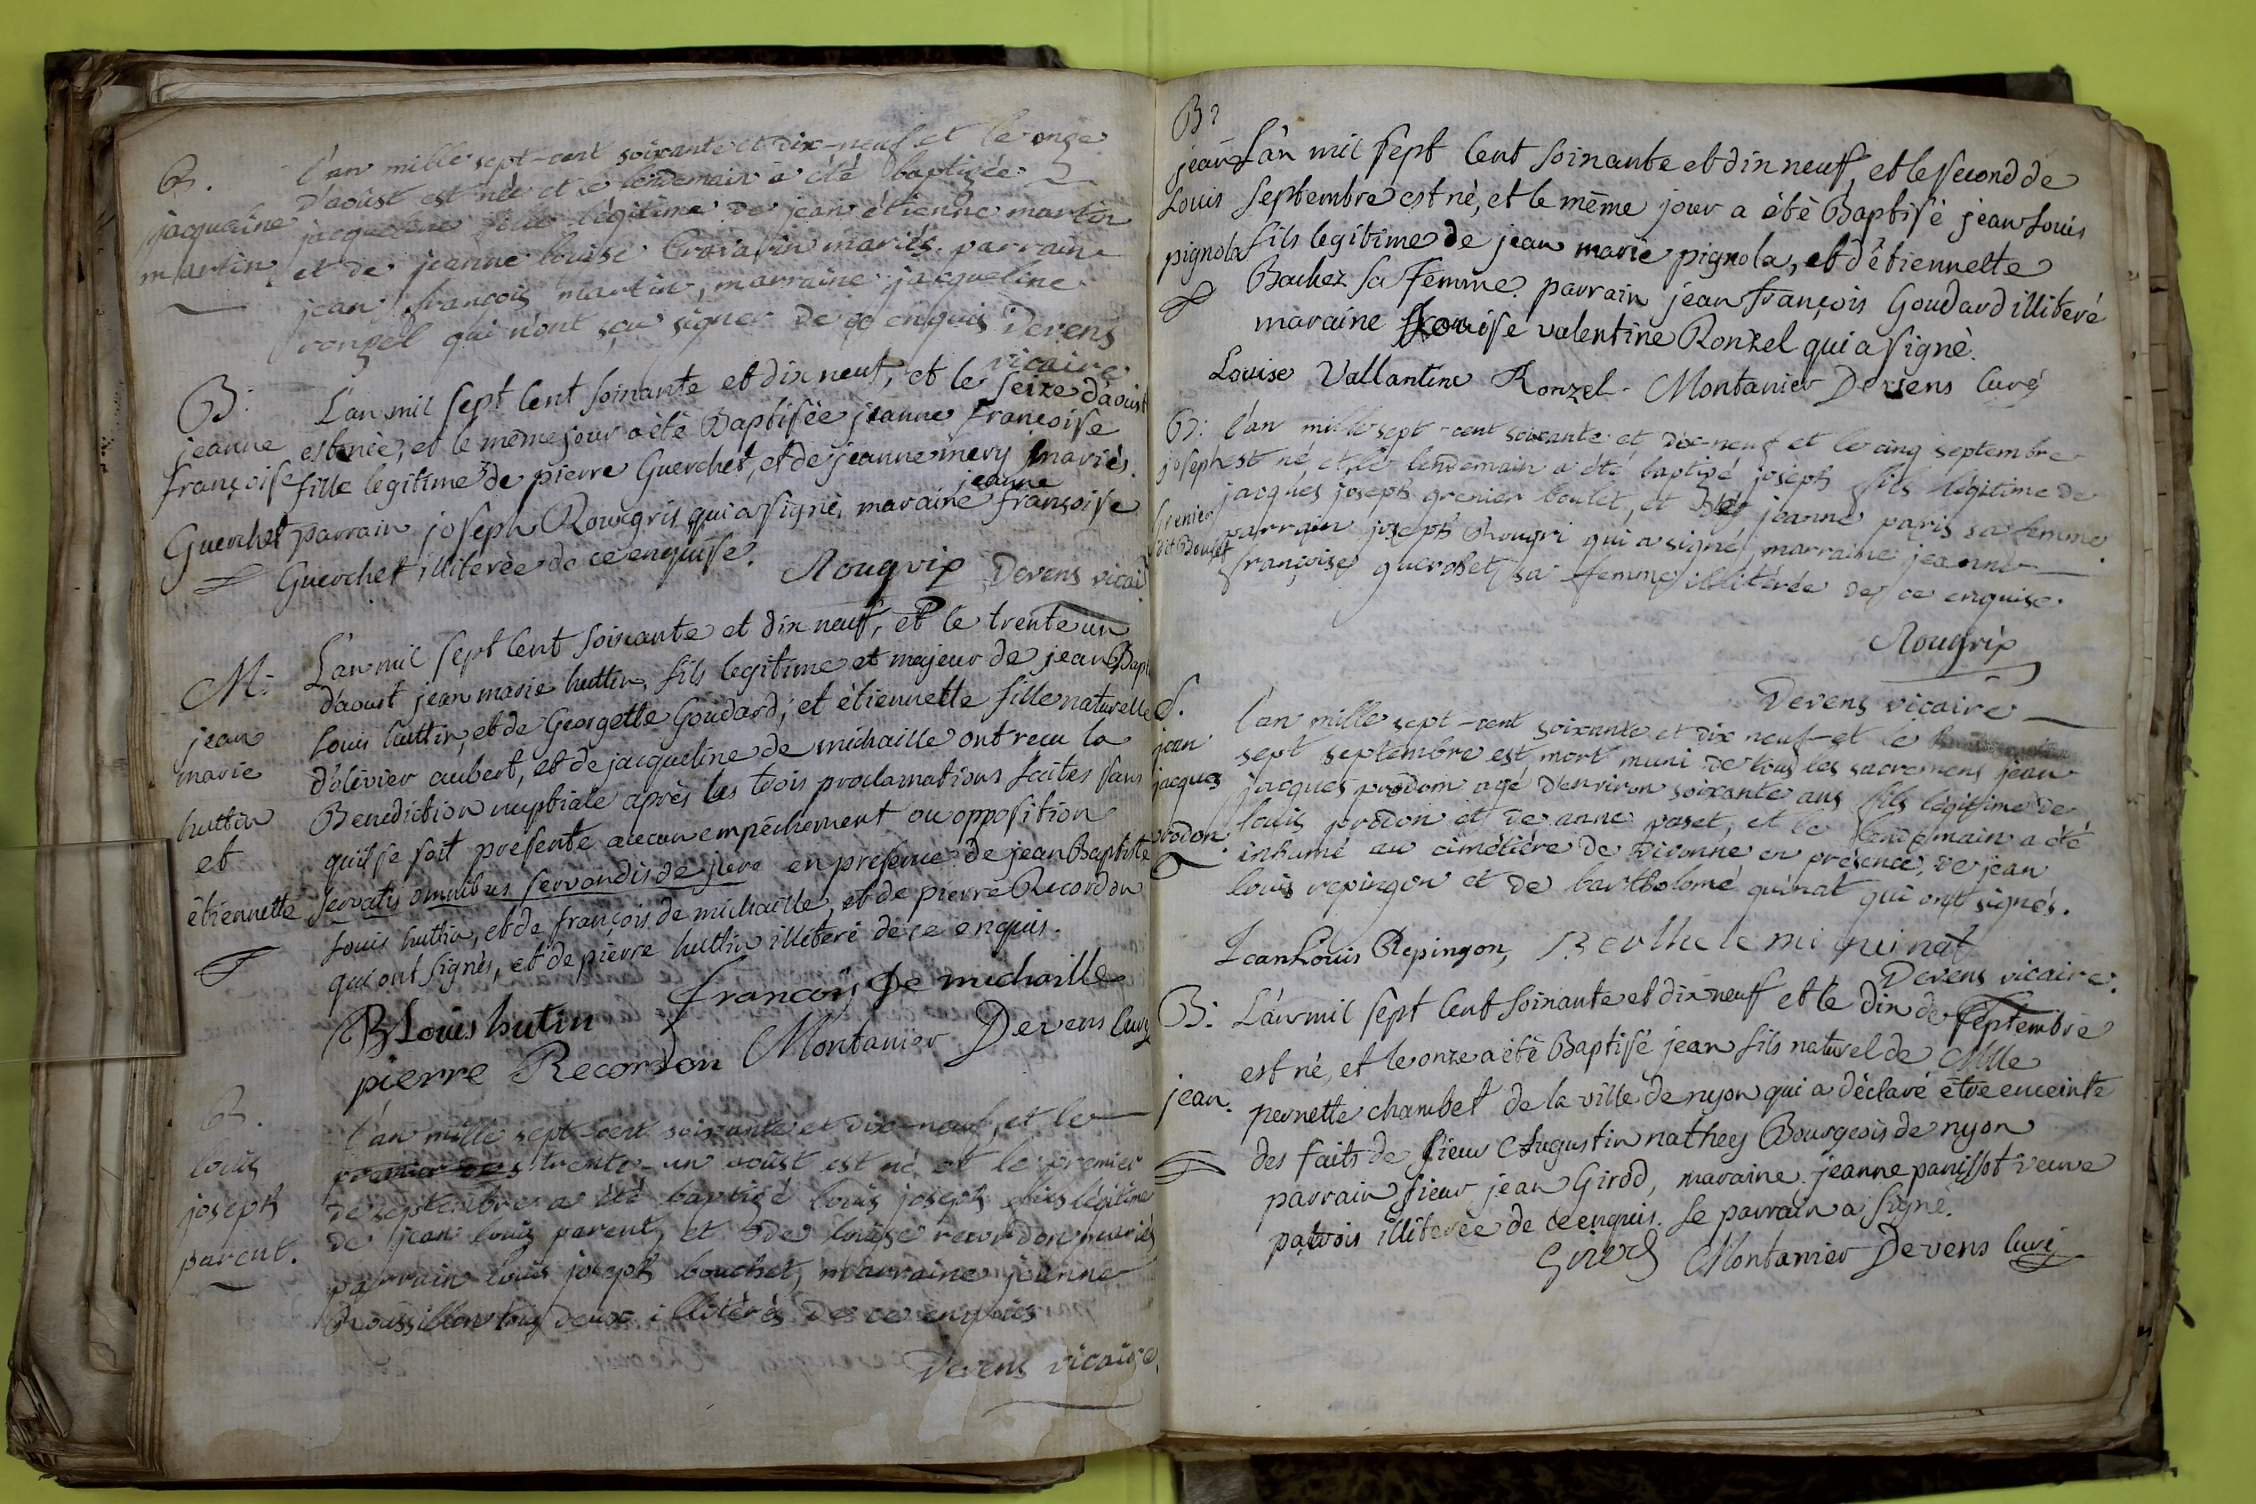 B.
jacqueline
martin
l'an mille sept-cent soixante et dix-neuf et le onze
d'aoûst est née et le lendemain a été baptizée
jacqueline fille légitime de jean étienne martin
et de jeanne louise mariés. parrain
jean françois martin, marraine jacqueline
ronzel qui n'ont sçu signer de ce enquis Devens
vicaire
B:
jeanne
françoise
Guerchet
L'an mil sept Cent soixante et dix neuf, et le seize d'aoust
est née, et le même jour a été Baptisée jeanne françoise
fille legitime de pierre Guerchet, et de jeanne mery mariés.
parrain joseph Rougris qui a signé, maraine jeanne françoise
Guerchet illiterée de ce enquise.
Rougrip Devens vicai
M:
jean
marie
huttin
et
étiennette
L'an mil sept Cent soixante et dix neuf, et le trente un
d'aoust jean marie huttin, fils legitime et majeur de jean Bapt
Louis huttin, et de Georgette Goudard; et étiennette fille naturelle
d'olivier aubert, et de jacqueline de michaille ont reçu la
Benediction nuptiale après les trois proclamations faites sans
qu'il se soit presenté aucun empéchement ou opposition
servatis omnibus servandis de jure en presence de jean Baptiste
Louis huttin, et de françois de michaille, et de pierre Recordon
qui ont signés, et de pierre huttin illiteré de ce enquis.
françois De michaille
B Louis hutin
pierre Recordon Montanier Devens Curé
B.
loüis
joseph
parent.
l'an mille sept-cent soixante et dix-neuf, et le
trente-un aoûst est né et le premier
de septembre a été baptizé loüis joseph fils légitime
de jean loüis parent, et de loüise recordon mariés
parrain loüis joseph bouchet, marraine jeanne
Roussillon tous deux illitérés de ce enquis
Devens vicaire.
B:
jean
Louis
pignola
L'an mil sept Cent soixante et dix neuf, et le second de
Septembre est né, et le même jour a été Baptisé jean Louis
fils legitime de jean marie pignola, et d'étiennette
Bachez sa femme. parrain jean françois Goudard illiteré
maraine Louise valentine Ronzel qui a signé.
Louise Vallantine Ronzel. Montanier Devens Curé
B:
joseph
Grenier
dit Boulet
l'an mille sept-cent soixante et dix-neuf et le cinq septembre
est né, et le lendemain a été baptizé joseph fils légitime de
jacques joseph grenier boulet, et de jeanne paris sa femme.
parrain joseph Rougri qui a signé, marraine jeanne
françoise guerchet sa femme illitérée de ce enquise.
Rougrip
Devens vicaire
S.
jean
jacques
prodon.
l'an mille sept-cent soixante et dix neuf et le
sept septembre est mort muni de tous les sacremens jean
jacques prodom agé d'environ soixante ans fils légitime de
loüis prodon et de anne paset, et le lendemain a été
inhumé au cimétiére de Divonne en présence de jean
loüis repingon et de bartholomé quinat qui ont signés.
Jean Louis Repingon, Berthelemi quinat
Devens vicaire.
B:
jean.
L'an mil sept Cent soixante et dix neuf et le dix de septembre
est né, et le onze a été Baptisé jean fils naturel de Mlle
pernette chambet de la ville de nyon qui a déclaré être enceinte
des faits de sieur Augustin nathey Bourgeois de nyon
parrain sieur jean Girod, maraine jeanne panissot veuve
patrois illiterée de ce enquis. Le parrain a signé.
Girod Montanier Devens Curé